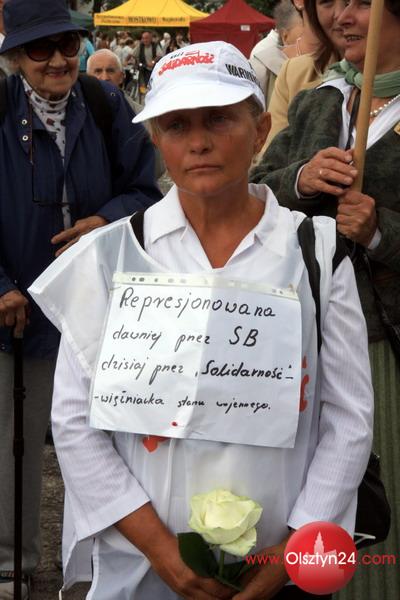 SOLIDARNOŚĆ
Represjonowana
dawniej przez SB
dzisiaj przez "Solidarność"-
-więźniarka stanu wojennego.
www.Olsztyn24.com